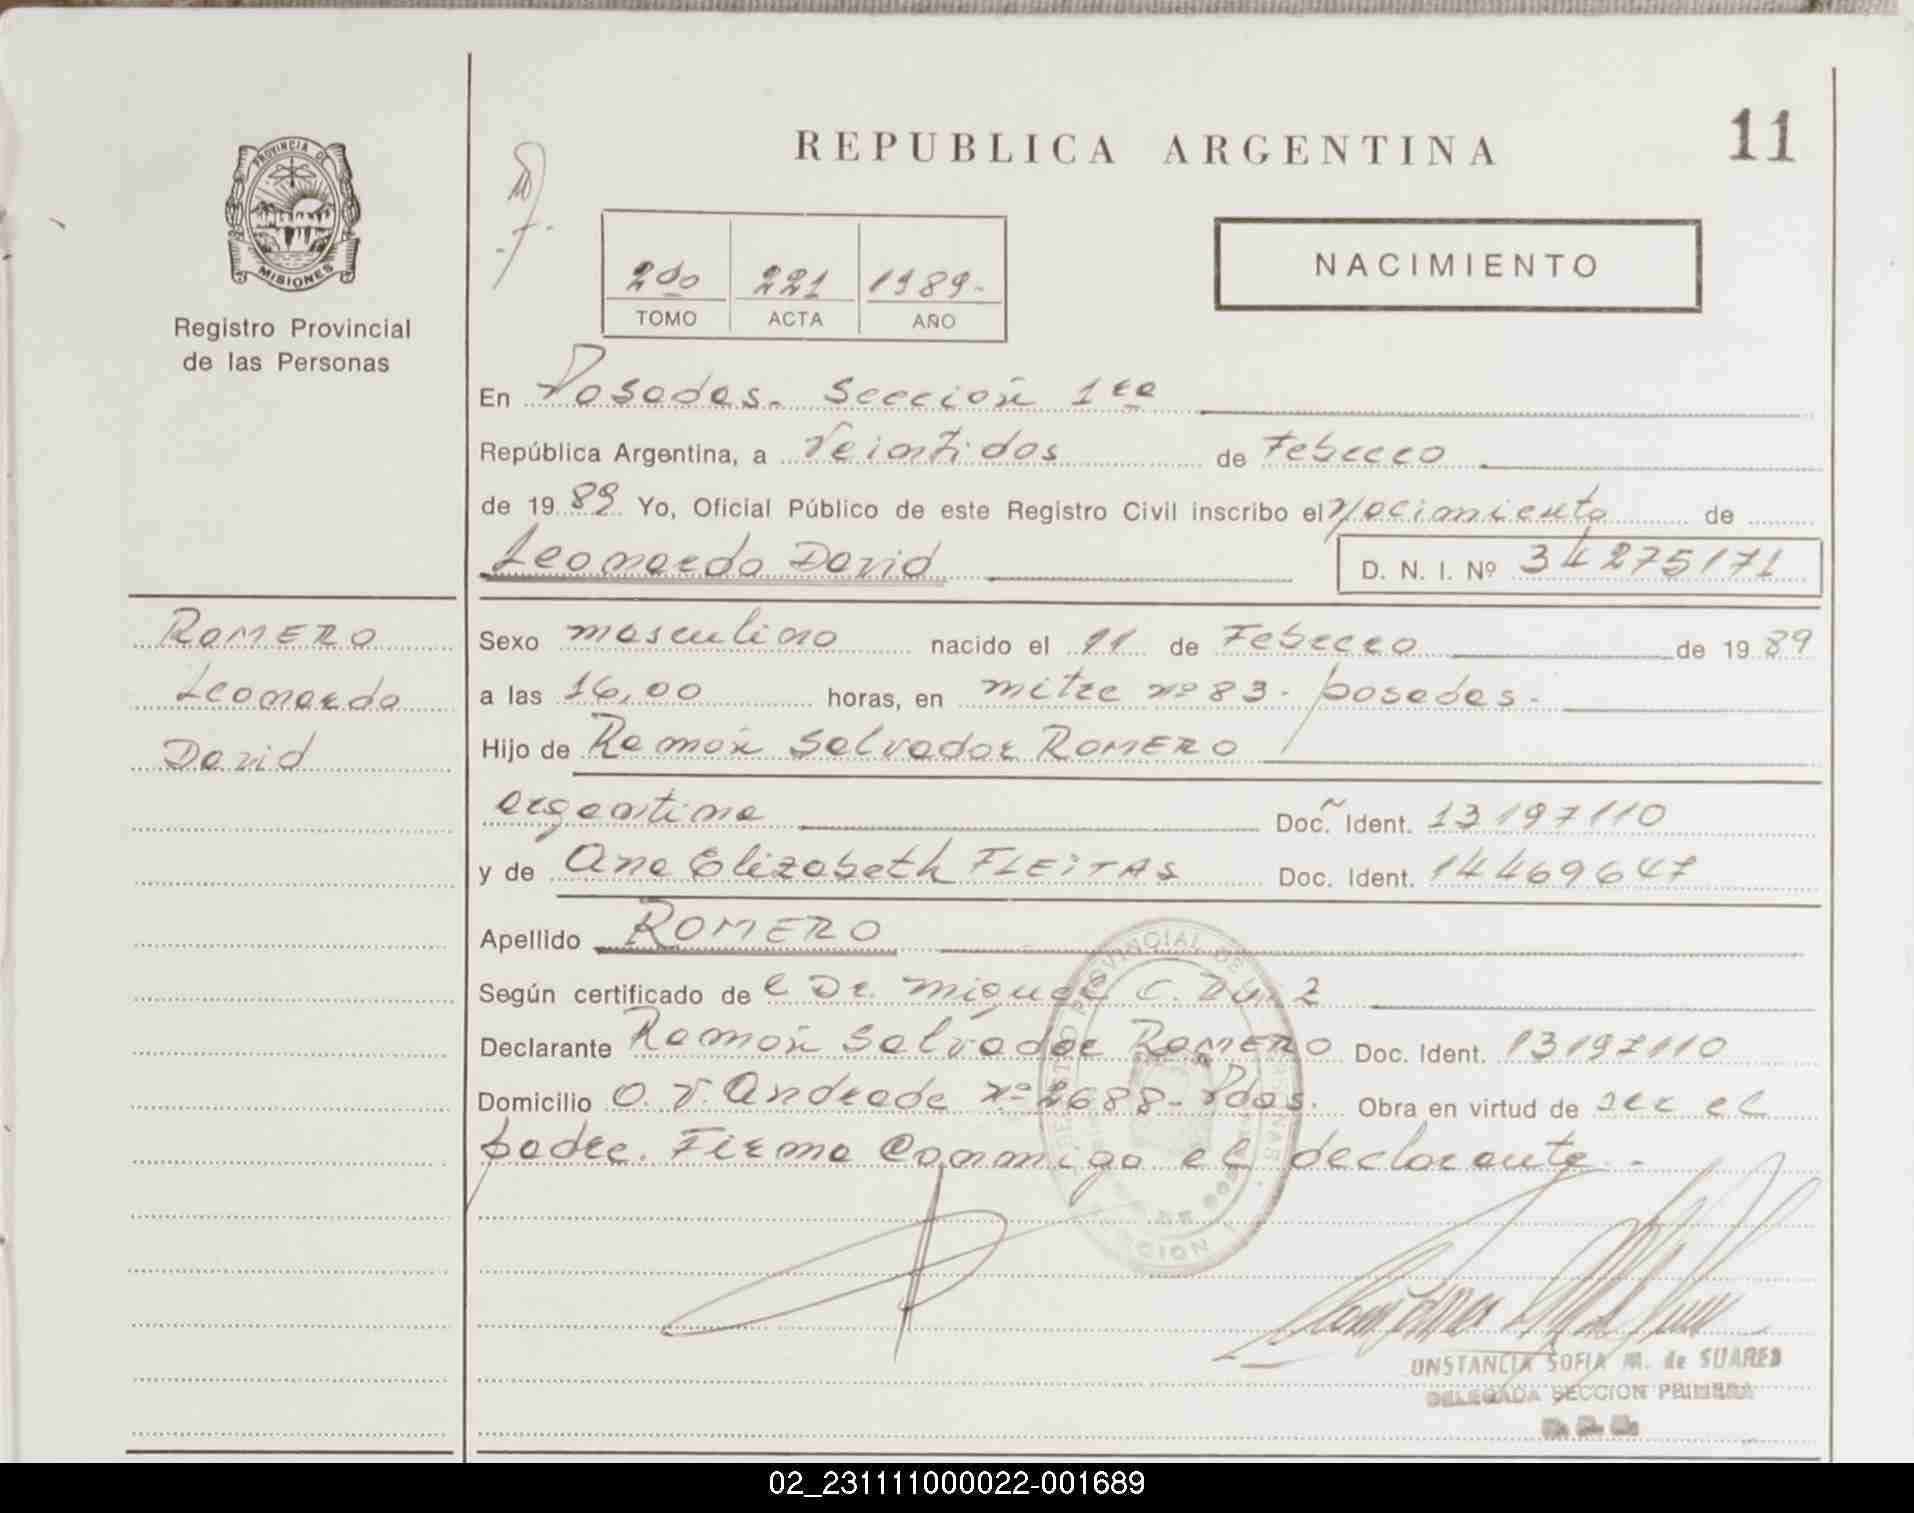 REPUBLICA ARGENTINA
11
PROVINCIA DE
MISIONES
Registro Provincial
de las Personas
2do 221 1989.-
TOMO ACTA AÑO
NACIMIENTO
En Posadas. Sección 1ra
República Argentina, a Veintidos de Febrero
de 1989 Yo, Oficial Público de este Registro Civil inscribo el Nacimiento de
Leonardo David D. N. I. Nº 34275171
ROMERO
Leonardo
David
Sexo masculino nacido el 11 de Febrero de 1989
a las 16,00 horas, en mitre nº 83. posadas.-
Hijo de Ramón Salvador ROMERO
argentina Doc. Ident. 13197110
y de Ana Elizabeth FLEITAS Doc. Ident. 14469647
Apellido ROMERO
Según certificado de el Dr. Miguel C.
Declarante Ramón Salvador ROMERO Doc. Ident. 13197110
Domicilio O. V. Andrade nº 2688- Pdas. Obra en virtud de ser el
padre. Firma Conmigo el declarante.-
UNSTANCIA SOFIA M. de SUARES
DELEGADA SECCION PRIMERA
02_231111000022-001689